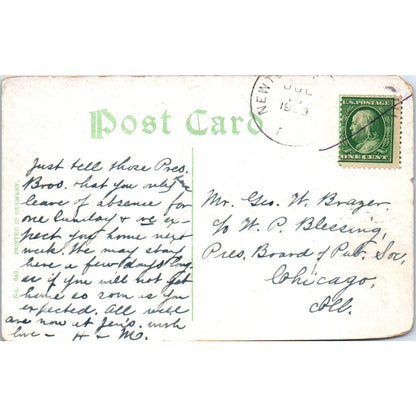 NEWTO
JUL
1909
U.S. POSTAGE
ONE CENT
Post Card
No. 960. PRINTED IN GERMANY.
Just tell those Pres.
Bros. that you only
leave of absence for
one Sunday & we ex-
pect you home next
week. We may stay
here a few days long
er if you will not get
home so soon as you
expected. All well
are now at Jen's. with
love - H & M.
Mr. Geo. W. Brazer,
c/o W. P. Blessing,
Pres. Board of Pub. So.,
Chicago,
Ill.